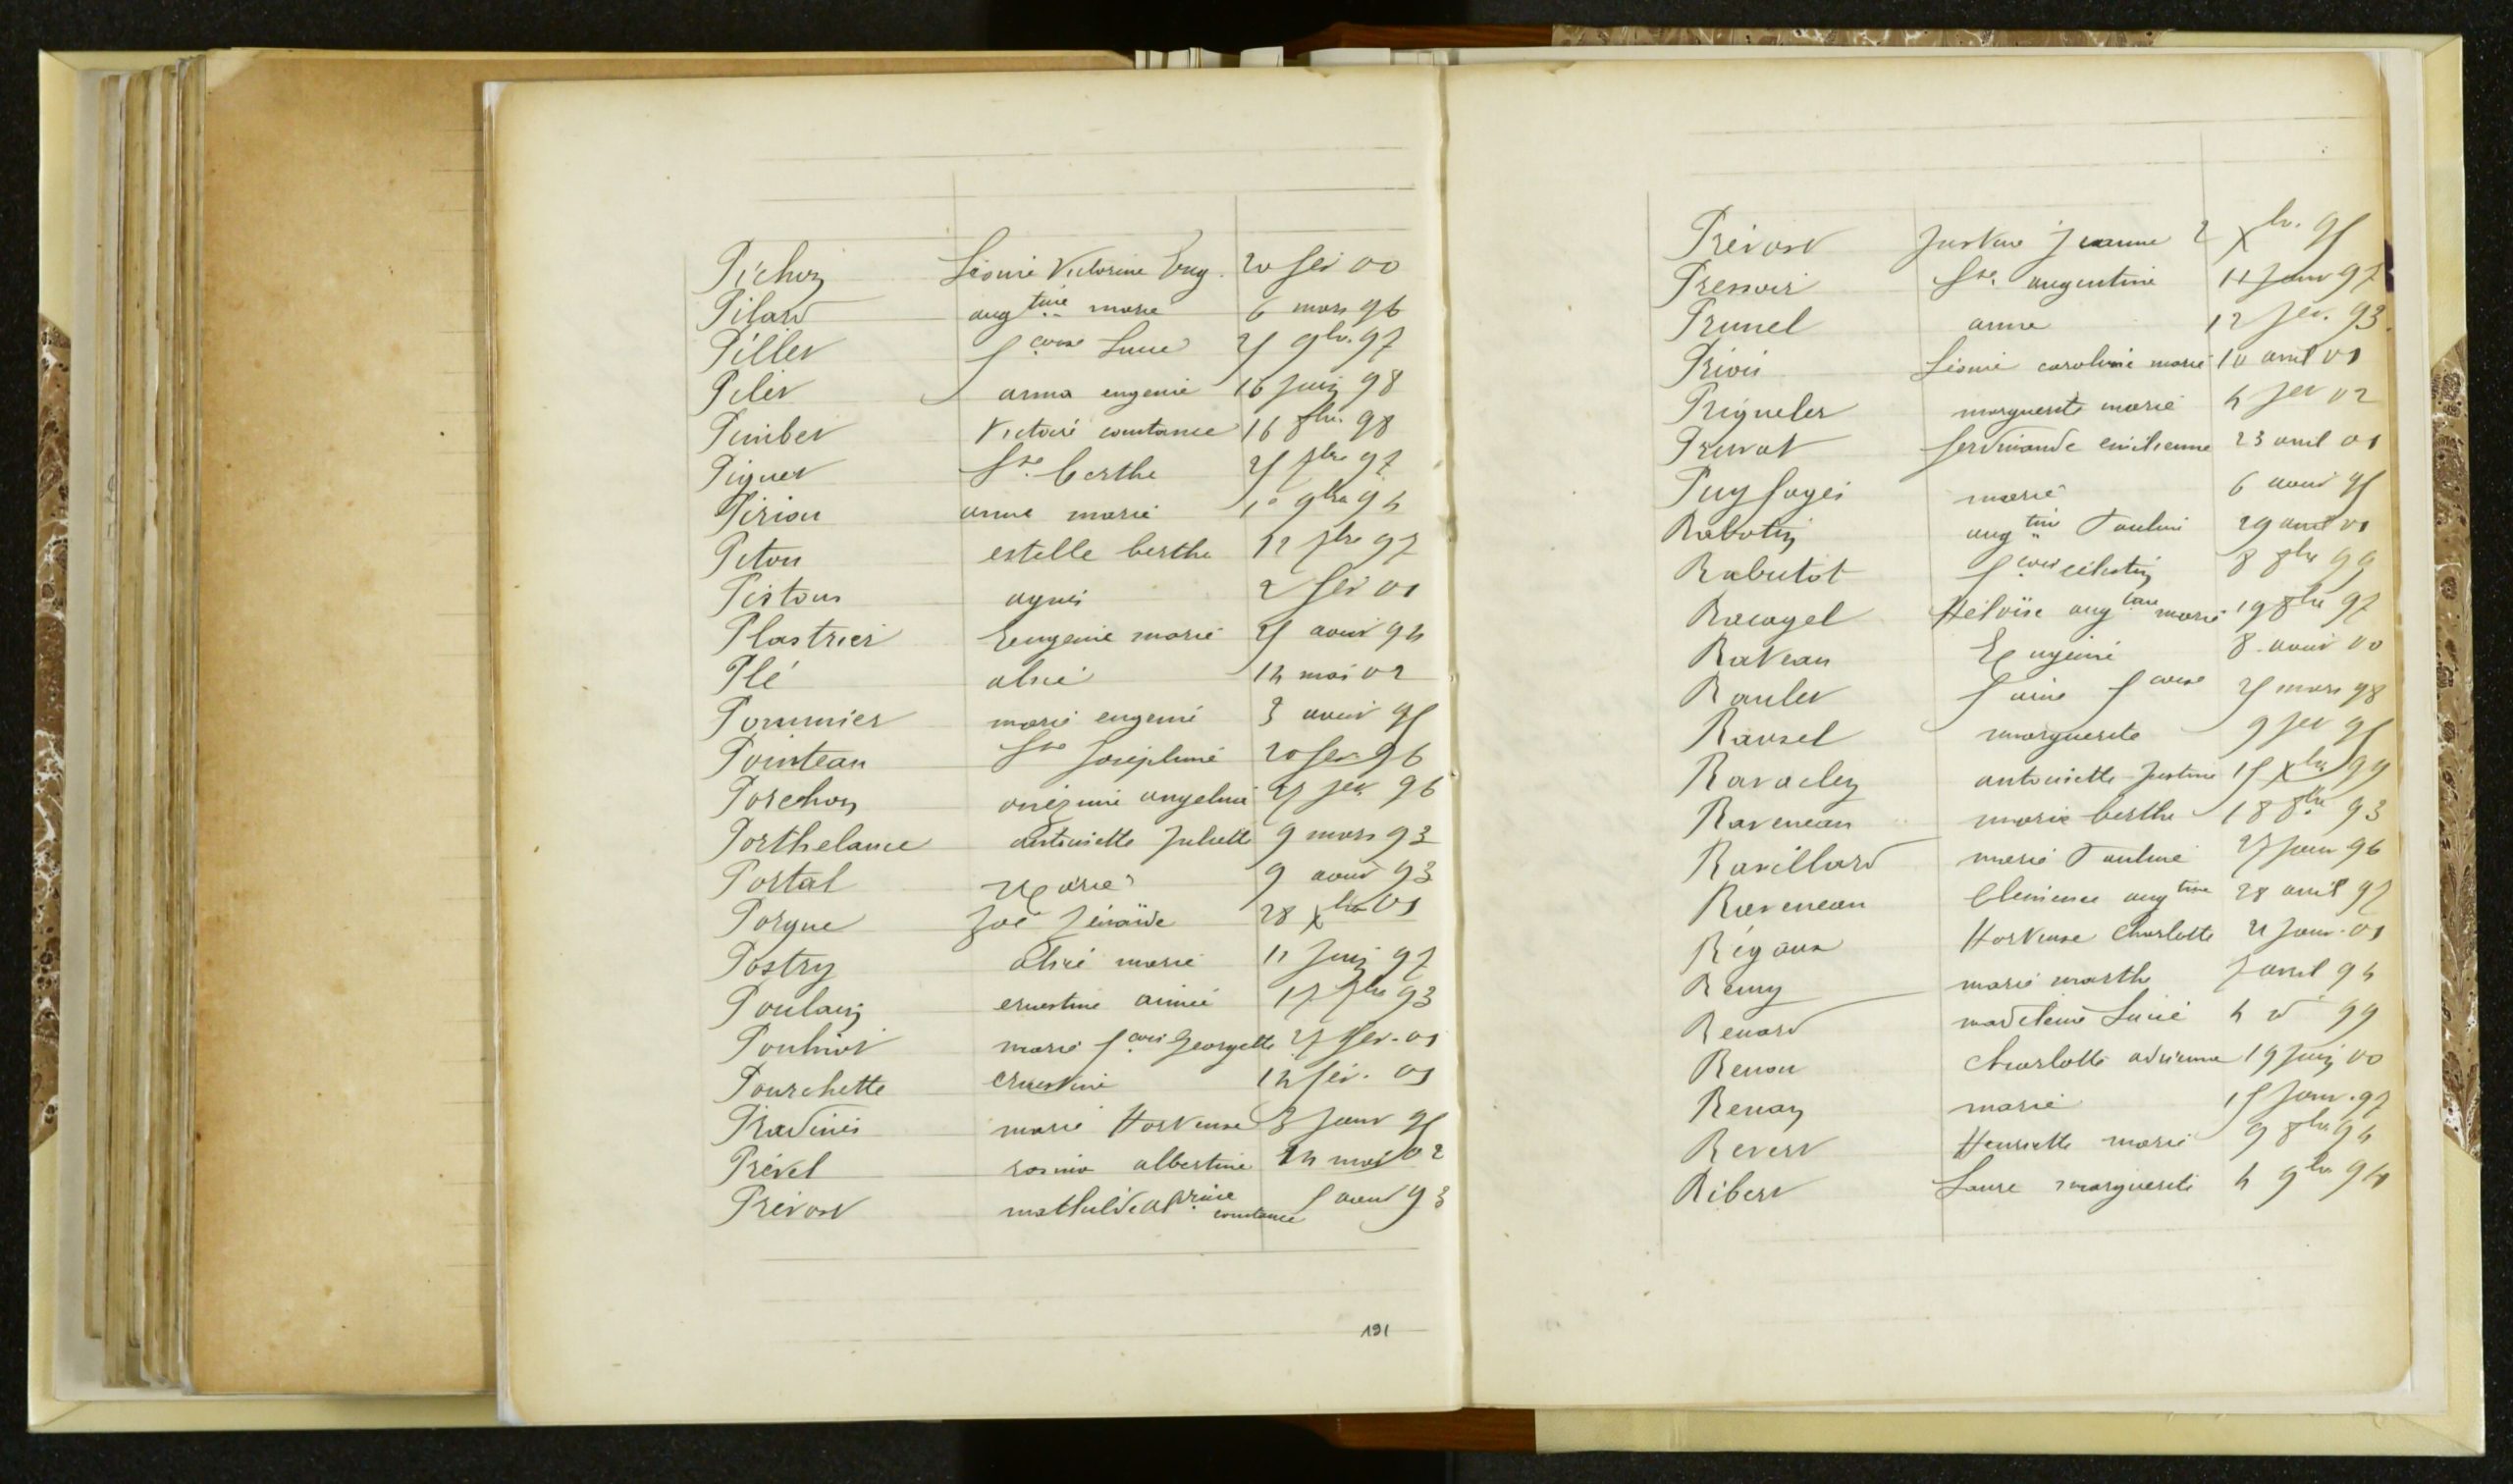 Pichon Léonie Victorine Eug. 20 fév 00
Pilard augtine marie 6 mars 96
Pillet fcoise Lucie 25 9bre 97
Pilet anna eugenie 16 juin 98
Pimbet Victoire constance 16 8bre 98
Piquet Berthe 25 7bre 97
Pirion anna marie 1er 9bre 94
Piton estelle berthe 12 7bre 97
Pistous agnès 2 fév 01
Plastrier Eugenie marie 25 aout 94
Plé alice 14 mai 02
Pommier marie eugenie 3 aout 95
Pointeau Josephine 20 fév 96
Porchon onézime angelina 27 fév 96
Porthelance antoinette Juliette 9 mars 93
Portal Marie 9 aout 93
Porque Zoé Zénaïde 28 Xbre 01
Postry alice marie 11 Juin 97
Poulain ernestine aimée 17 7bre 93
Pouhior marie fcoise Georgette 27 fév. 01
Pourchette ernestine 14 fév. 01
Pradinès marie Hortense 3 Janv 95
Prével rosine albertine 24 mai 02
Prévost mathilde constance 5 aout 93
191
Prévost Justine Jeanne 2 Xbre 95
Pressoir augustine 11 Janv 97
Prunel anne 12 fév. 93
Privis Léonie caroline marie 10 avril 01
Priqueler marguerite marie 4 fév 02
Pruvot ferdinande emilienne 23 avril 01
Puyfagès marie 6 aout 95
Rabotin augtine Pauline 29 avril 01
Rabutot fcoise célestin 8 8bre 99
Racagel Héloïse augtine marie 19 8bre 97
Rateau Eugénie 8 aout 00
Raulet fcoise 25 mars 98
Rausel marguerite 9 fév 95
Ravacley antoinette Justine 15 Xbre 99
Raveneau marie berthe 18 8bre 93
Ravillard marie Pauline 27 Janv 96
Raveneau Clémence augtine 28 avril 97
Régaux Hortense Charlotte 21 Janv. 01
Remy marie marthe 7 avril 94
Renard madeleine Lucie 4 d° 99
Renou Charlotte adrienne 19 juin 00
Renay marie 15 Janv. 97
Revert Henriette marie 9 8bre 94
Ribert Laure marguerite 4 9bre 94